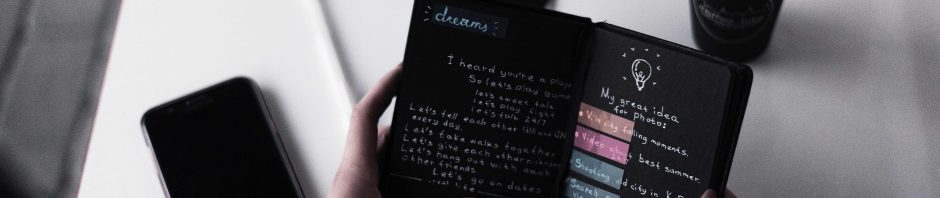 dreams
I heard you're a playe
So let's play game
let's sweet talk
let's play light
let's talk 24/7
Let's tell each other GM and GN
every day.
Let's take walks together
Let's give each other nickname
Let's hang out with each
other friends.
Let's go on dates
real life
My great idea
for photo:
falling moments.
Video best summer.
Shooting old city in
Search